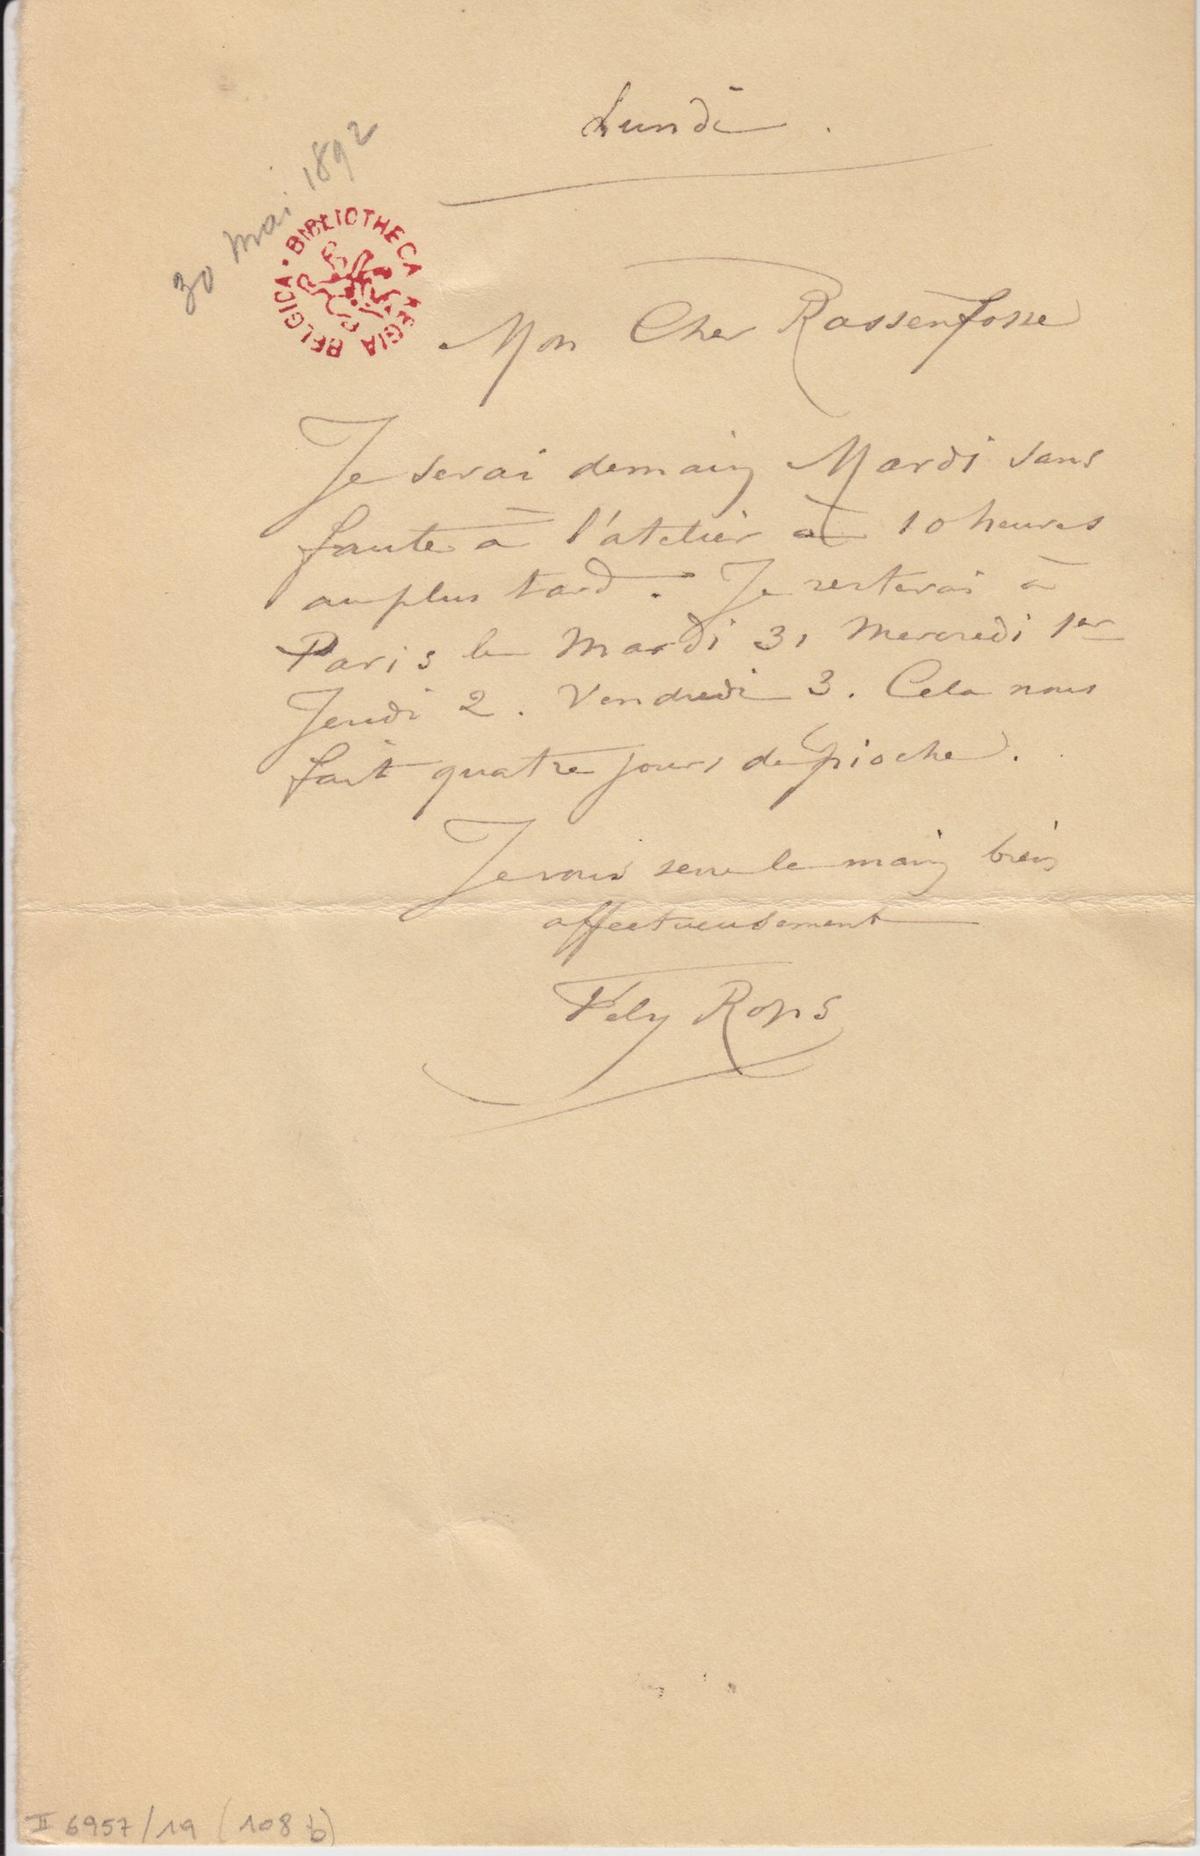 Lundi.
30 mai 1892
BIBLIOTHECA REGIA BELGICA
Mon Cher Rassenfosse
Je serai demain Mardi sans
faute à l'atelier à 10 heures
au plus tard. Je resterai à
Paris le Mardi 31 Mercredi 1er
Jeudi 2. Vendredi 3. Cela nous
fait quatre jours de pioche.
Je vous serre la main bien
affectueusement
Fély Rops
II 6957/19 (108 b)